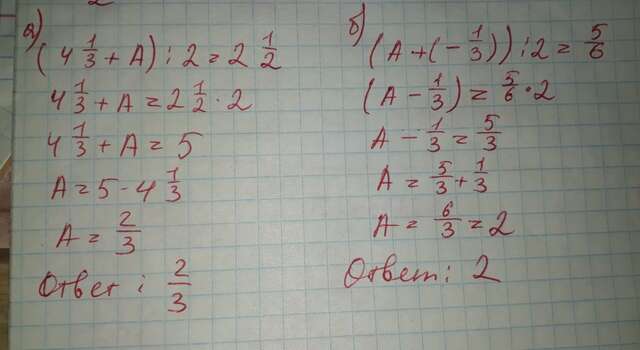 а)
(4 1/3 + A) : 2 = 2 1/2
4 1/3 + A = 2 1/2 · 2
4 1/3 + A = 5
A = 5 - 4 1/3
A = 2/3
Ответ : 2/3
б)
(A + (- 1/3)) : 2 = 5/6
(A - 1/3) = 5/6 · 2
A - 1/3 = 5/3
A = 5/3 + 1/3
A = 6/3 = 2
Ответ : 2